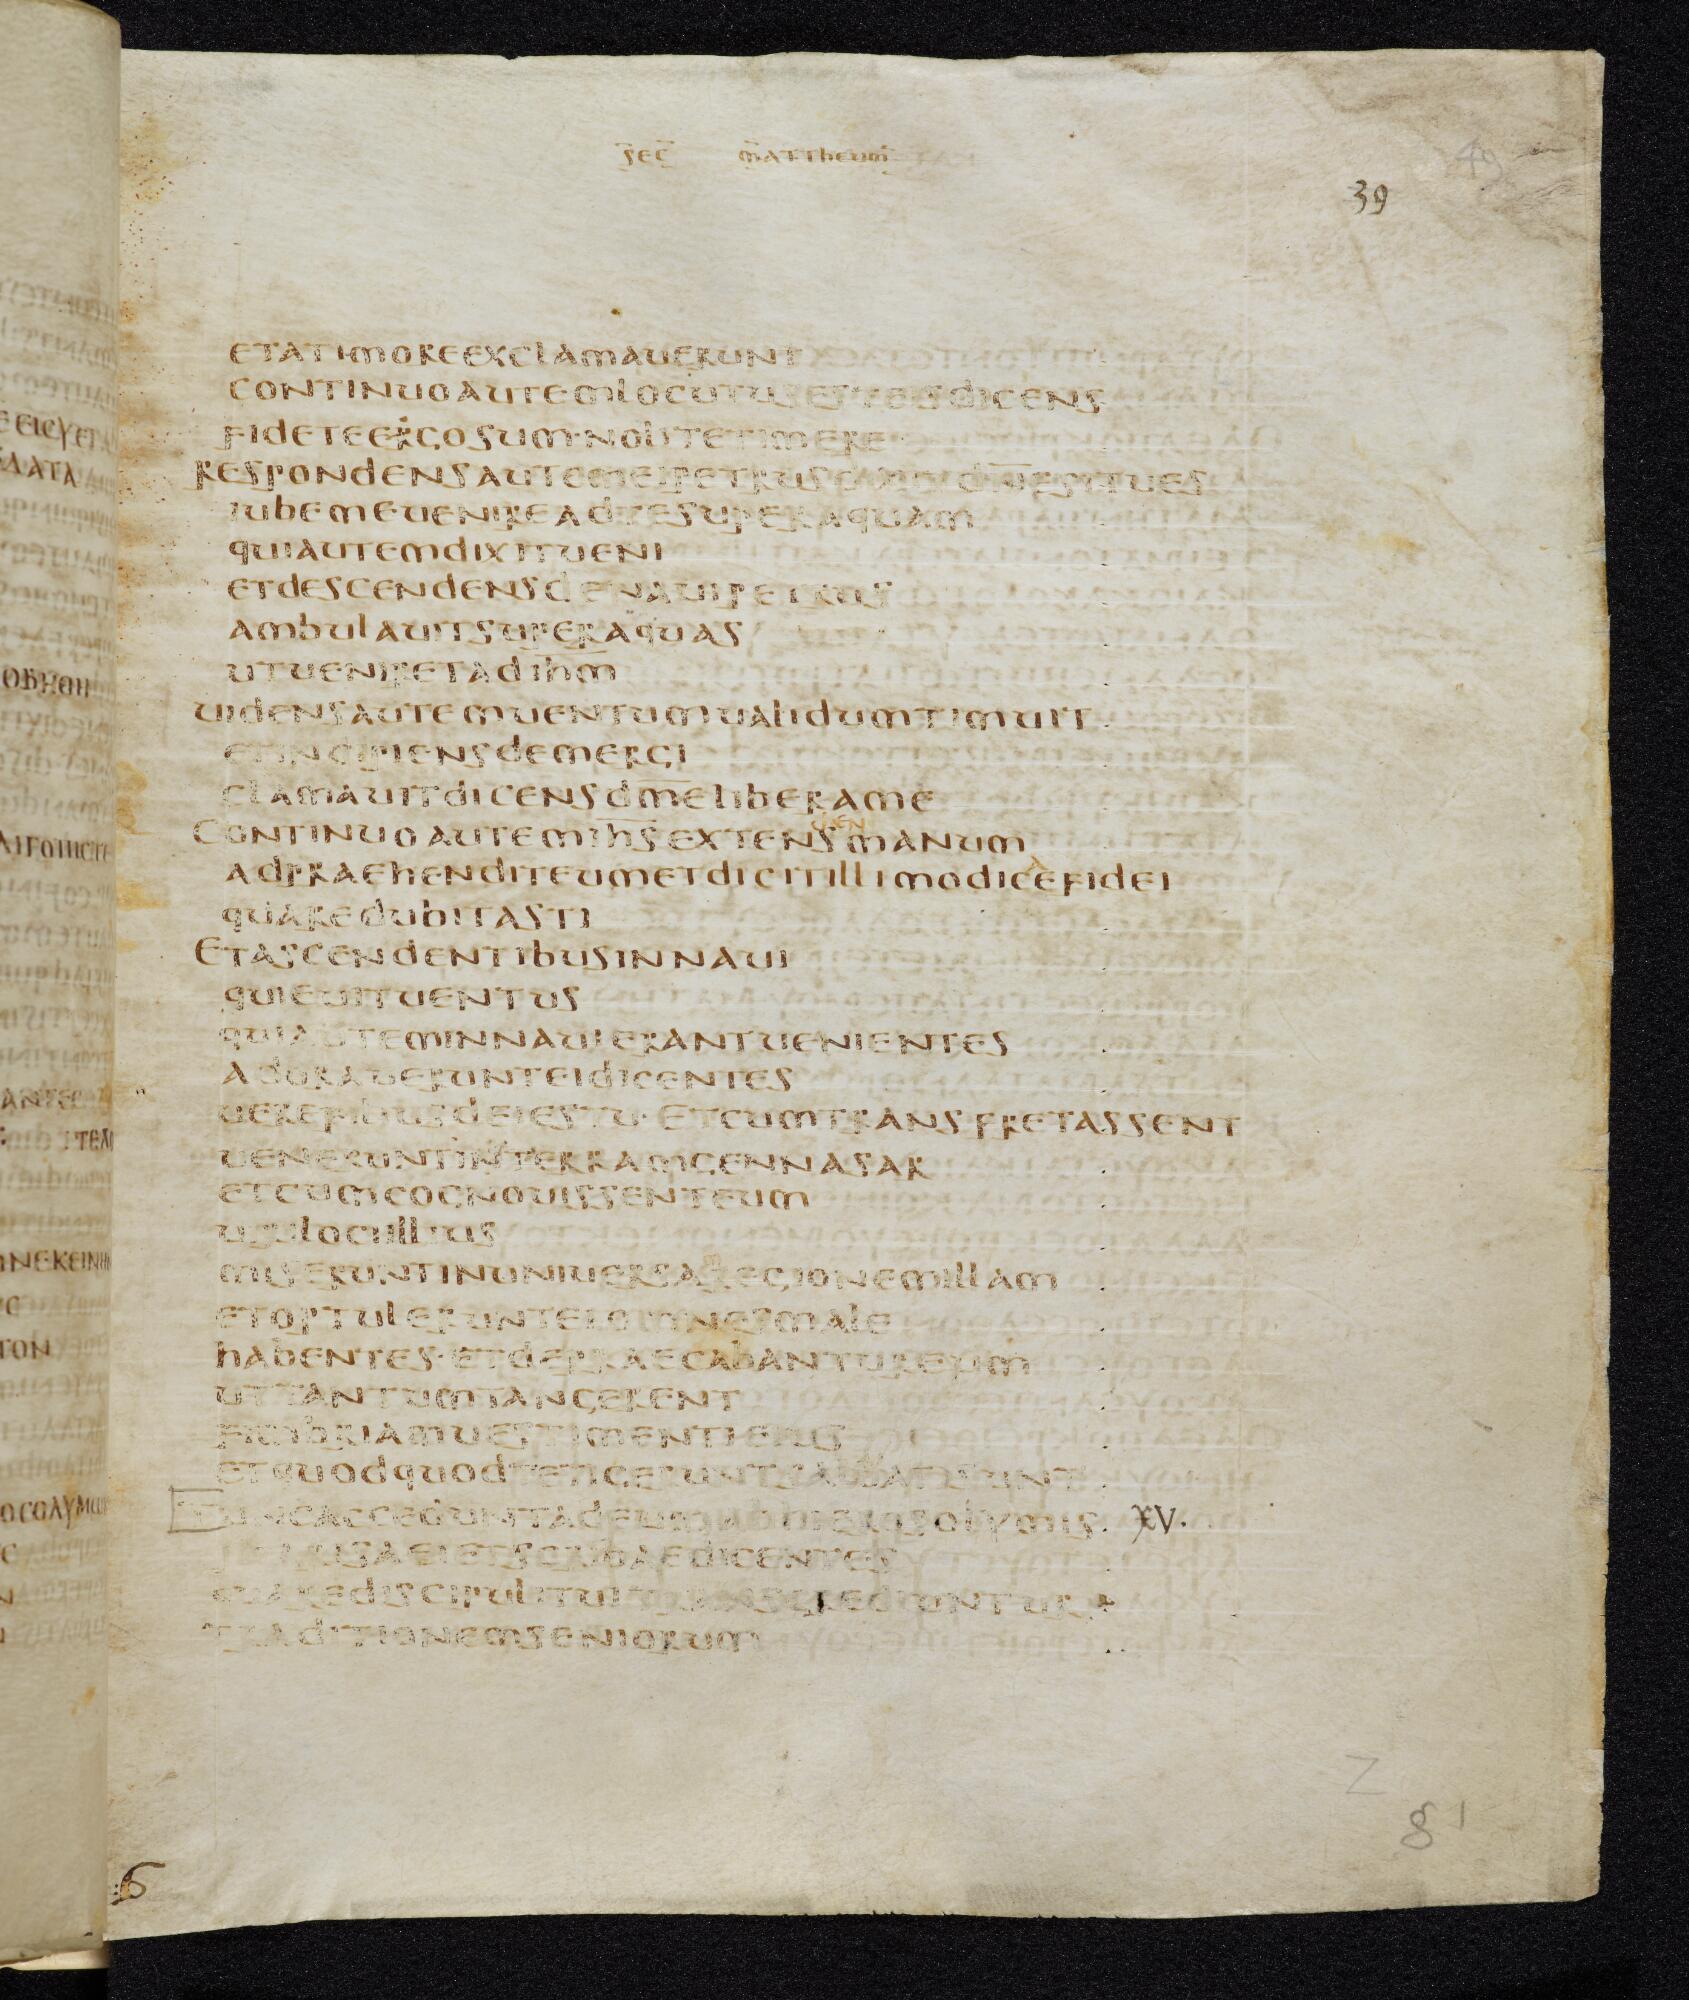 sec mattheum
39
etatimoreexclamauerunt
continuoautemlocutusesteisdicens
fideteegosum·nolitetimere
respondensautemeipetrusdixit dn̄esitues
iubemeuenireadtesuperaquam
quiautemdixitueni
etdescendensdenauipetrus
ambulauitsuperaquas
utueniretadihm̄
uidensautemuentumualidumtimuit
etincipiensdemergi
clamauitdicensdm̄eliberame
Continuoautemihs̄extensmanum
adpraehenditeumetdicitillimodicefidei
quaredubitasti
Etascendentibusinnaui
quieuituentus
quiauteminnauierantuenientes
adorauerunteidicentes
uerefiliusdeiestu· Etcumtransfretassent
ueneruntinterramgennasar
etcumcognouissenteum
uiriloci illius
miseruntinuniuersaregionemillam
etoptulerunteiomnesmale
habentes·etdepraecabantureum
uttantumtangerent
fimbriamuestimentieius
etquodquodtengeruntsaluatisunt
Tuncacceduntadeumab hierosolymis· XV·
pharisaei etscribaedicentes
quarediscipulituitransgrediuntur
traditionemseniorum
6